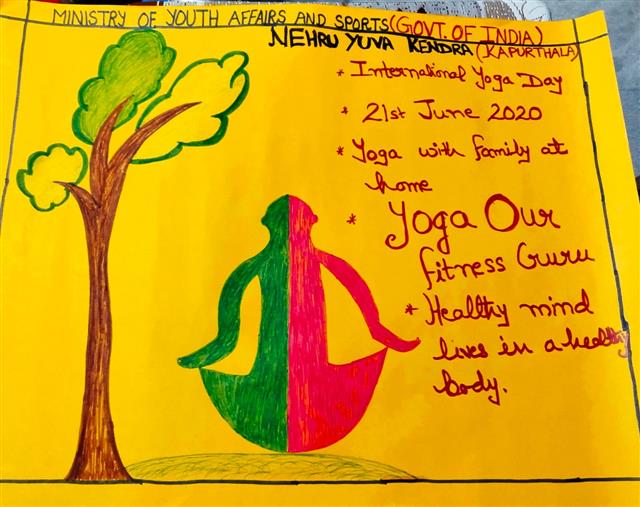 MINISTRY OF YOUTH AFFAIRS AND SPORTS(GOVT. OF INDIA)
NEHRU YUVA KENDRA (KAPURTHALA)
* International Yoga Day
* 21st June 2020
* Yoga with family at
home
* Yoga Our
fitness Guru
* Healthy mind
lives in a healthy
body.